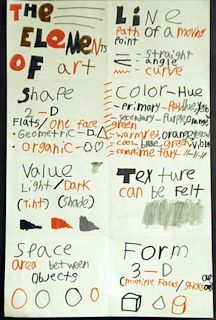 THE
ELEMENTS
OF art
LiNe
path of a moving
point
straight
angle
curve
Shape
2-D
Flats/one face
Geometric
organic
Color-Hue
primary-Red yellow
secondary-Purple
green orange
warm red orange yellow
cool blue green
Value
Light/Dark
(Tint) (Shade)
TexTure
can be Felt
Space
area between
objects
Form
3-D
(multiple Faces/sides